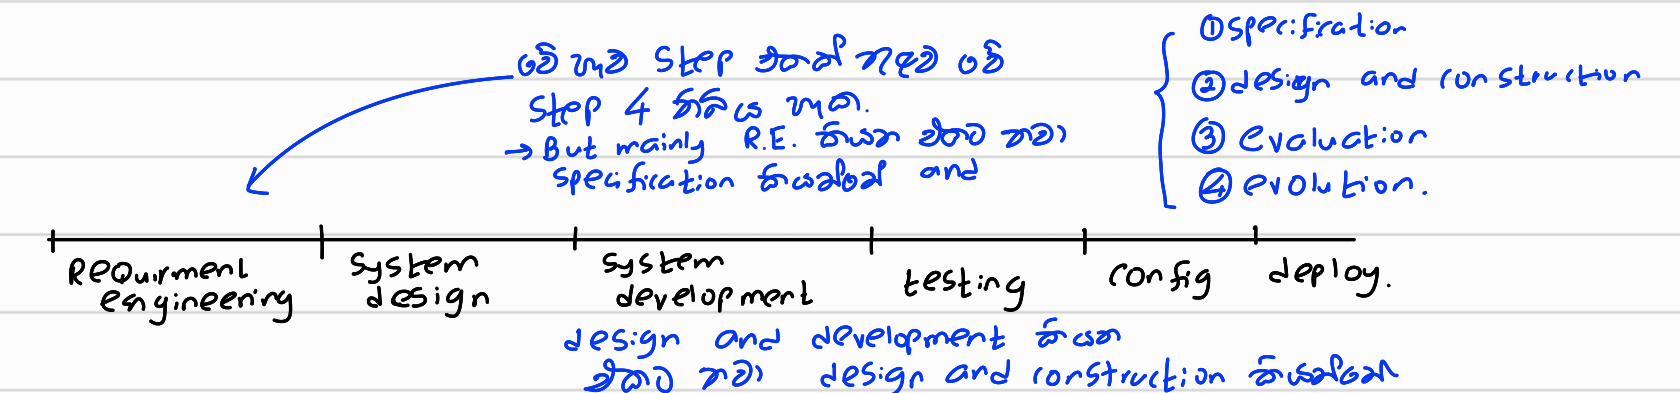 මේ හැම Step එකක් තුලම මේ
Step 4 තිබිය හැක.
→ But mainly R.E. කියන එකට තමා
specification කියන්නේ and
① specification
② design and construction
③ evaluation
④ evolution.
Requirment
engineering
system
design
system
development
testing
config
deploy.
design and development කියන
එකට තමා design and construction කියන්නේ